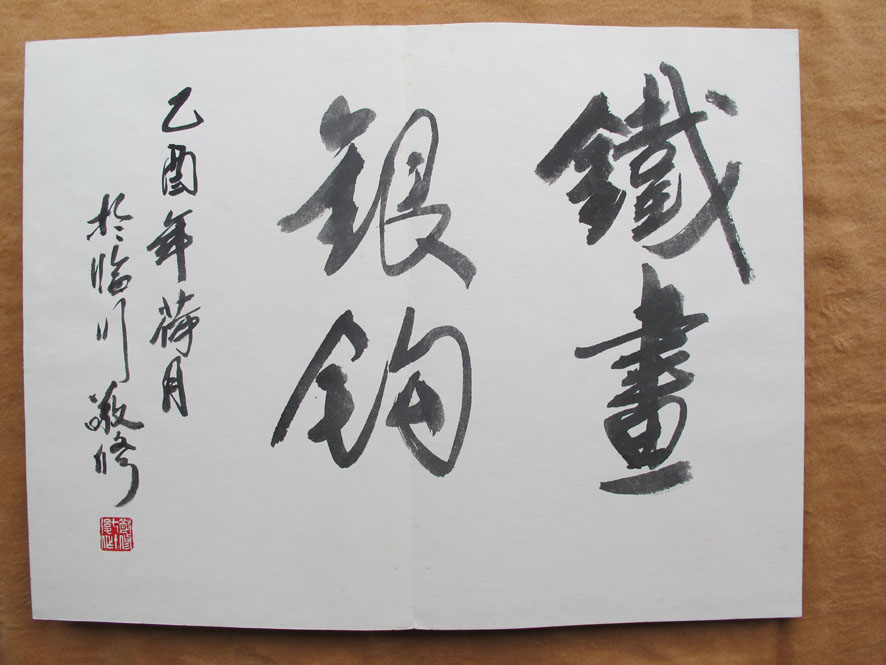 鐵畫
銀鉤
乙酉年荷月
於臨川敬修